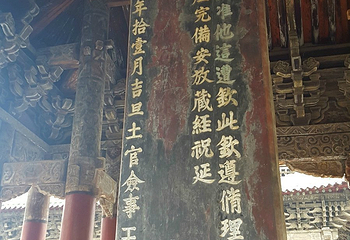 准他這遭欽此欽遵脩理
完備安放藏經祝延
年拾壹月吉旦土官僉事王